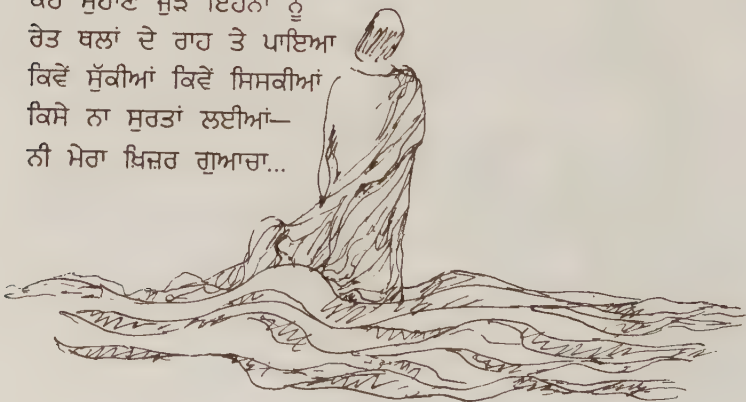 ਰੇਤ ਥਲਾਂ ਦੇ ਰਾਹ ਤੇ ਪਾਇਆ
ਕਿਵੇਂ ਸੁੱਕੀਆਂ ਕਿਵੇਂ ਸਿਸਕੀਆਂ
ਕਿਸੇ ਨਾ ਸੁਰਤਾਂ ਲਈਆਂ—
ਨੀ ਮੇਰਾ ਖ਼ਿਜ਼ਰ ਗੁਆਚਾ...